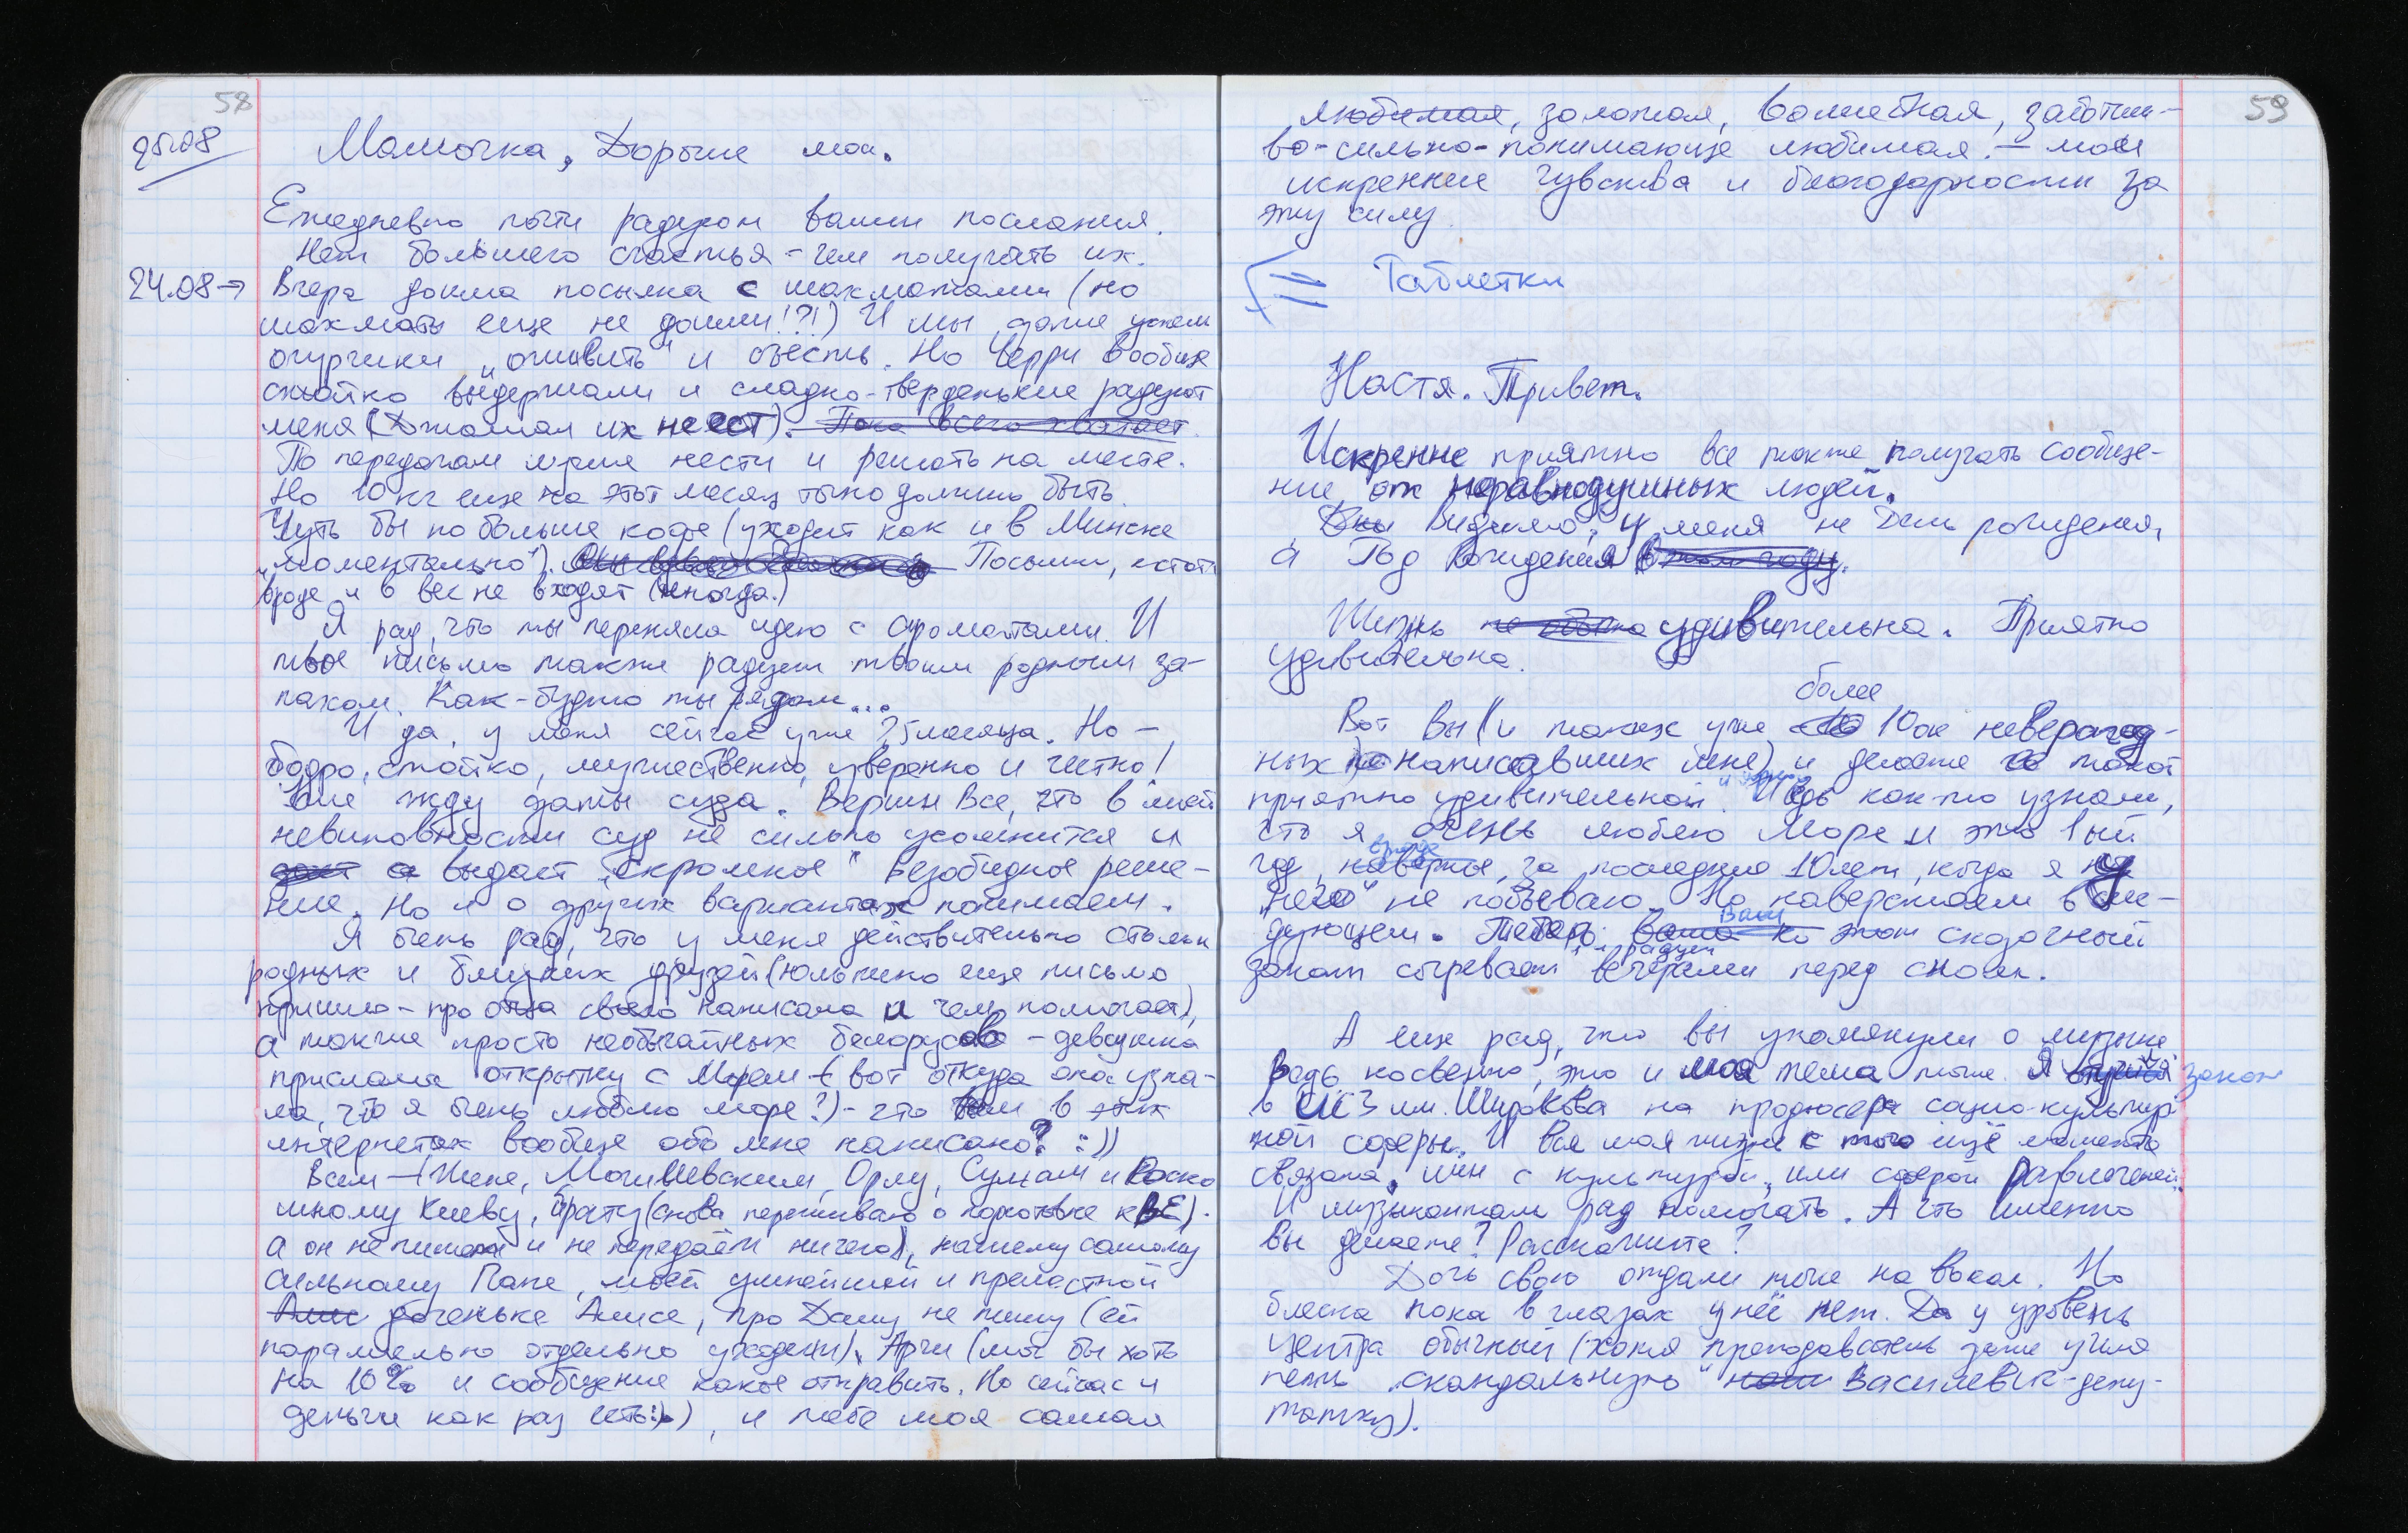 58
25.08
Мамочка, Дорогие мои.
Ежедневно почти радуют ваши послания.
Нет большего счастья - чем получать их.
24.08→ Вчера дошла посылка с шахматами (но
шахматы еще не дошли!?!) И мы даже успели
огурчики „оживить" и съесть. Но Черри вообще
стойко выдержали и сладко-твёрденькие радуют
меня ( их не ест). Пока всего хватает.
По передачам лучше нести и решать на месте.
Но 10 кг еще на этот месяц точно должно быть.
Чуть бы побольше кофе (уходит как и в Минске
„моментально"). Посылки, кстати
вроде и в вес не входят (иногда.)
Я рад, что ты переняла идею с ароматами. И
твое письмо также радует твоим родным за-
пахом. Как-будто ты рядом...
И да, у меня сейчас уже 2,5 месяца. Но -
бодро, стойко, мужественно, уверенно и честно!
Все жду даты суда. Верим все, что в моей
невиновности суд не сильно усомнится и
выдаст „скромное" безобидное реше-
ние. Но и о других вариантах понимаем.
Я очень рад, что у меня действительно столько
родных и близких друзей (Юлькино еще письмо
пришло - про отца своего написала и чем помогает),
а также просто необычайных белорусов - девушка
прислала открытку с Морем - (вот откуда она узна-
ла, что я очень люблю море?) - что там в этих
интернетах вообще обо мне написано? :))
Всем - (Жене, Могилевским, Орлу, Сумам и Роско
шному Киеву, Брату (снова переживаю о подготовке к ВЕ).
а он не пишет и не передаёт ничего), нашему самому
сильному Папе, моей умнейшей и прелестной
доченьке Алисе, про Дашу не пишу (ей
параллельно отдельно уходят), Арчи (мог бы хоть
на 10% и сообщение какое отправить. Но сейчас и
деньги как раз есть:)), и тебе моя самая
59
любимая, золотая, волшебная, заботли-
во-сильно-понимающе любимая. - мои
искренние чувства и благодарности за
эту силу.
Таблетки
Настя. Привет.
Искренне приятно все также получать сообще-
ние от неравнодушных людей.
Видимо, у меня не День рождения,
а Год Рождения в том году.
Жизнь удивительна. Приятно
удивительна.
более
Вот Вы (и таких уже 10ок невероят-
ных написавших мне) и делаете её такой
приятно удивительной. Ведь как-то узнали,
что я очень люблю Море и это 1ый
вроде
год, наверное, за последние 10 лет, когда я у
„него" не побываю. Но наверстаем в сле-
Ваш
дующем. Теперь этот сказочный
радует
закат согревает вечерами перед сном.
А еще рад, что вы упомянули о музыке
Ведь косвенно, это и моя тема тоже. Я закон
в им. Широкова на продюсера социо-культур
ной сферы. И вся моя жизнь с того ещё момента
связана, или с культурой, или сферой развлечений.
И музыкантам рад помогать. А что именно
вы делаете? Расскажите?
Дочь свою отдали тоже на вокал. Но
блеска пока в глазах у неё нет. Да у уровень
центра обычный (хотя преподаватель даже учила
петь „скандальную" Василевич-депу-
татку).